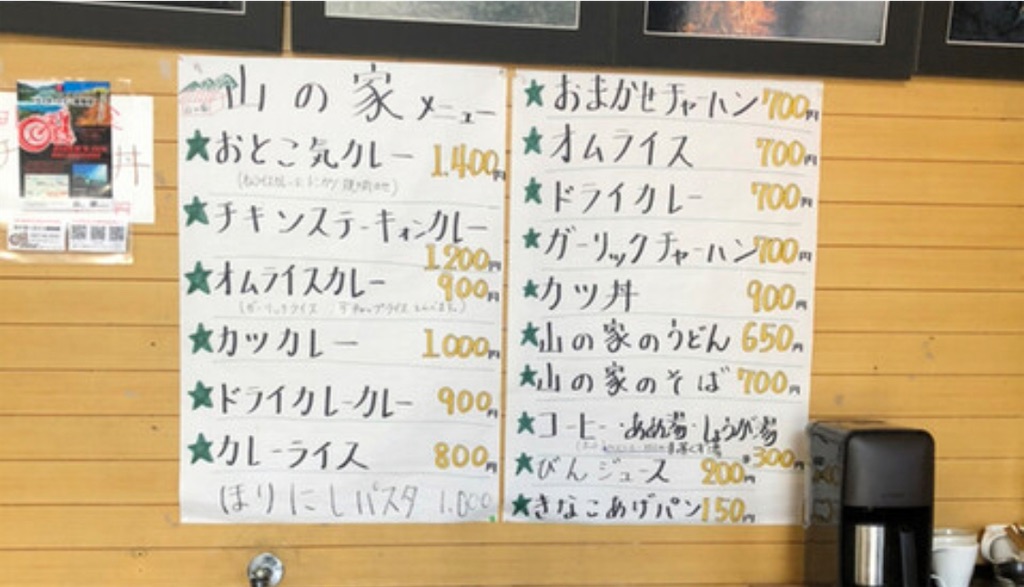 山の家 メニュー
★おとこ気カレー 1.400円
★チキンステーキオンカレー
1200円
★オムライスカレー 900円
★カツカレー 1000円
★ドライカレーカレー 900円
★カレーライス 800円
ほりにしパスタ 1.000
★おまかせチャーハン 700円
★オムライス 700円
★ドライカレー 700円
★ガーリックチャーハン 700円
★カツ丼 900円
★山の家のうどん 650円
★山の家のそば 700円
★コーヒー・あめ湯・しょうが湯
300円
★びんジュース 200円
★きなこあげパン 150円
丼